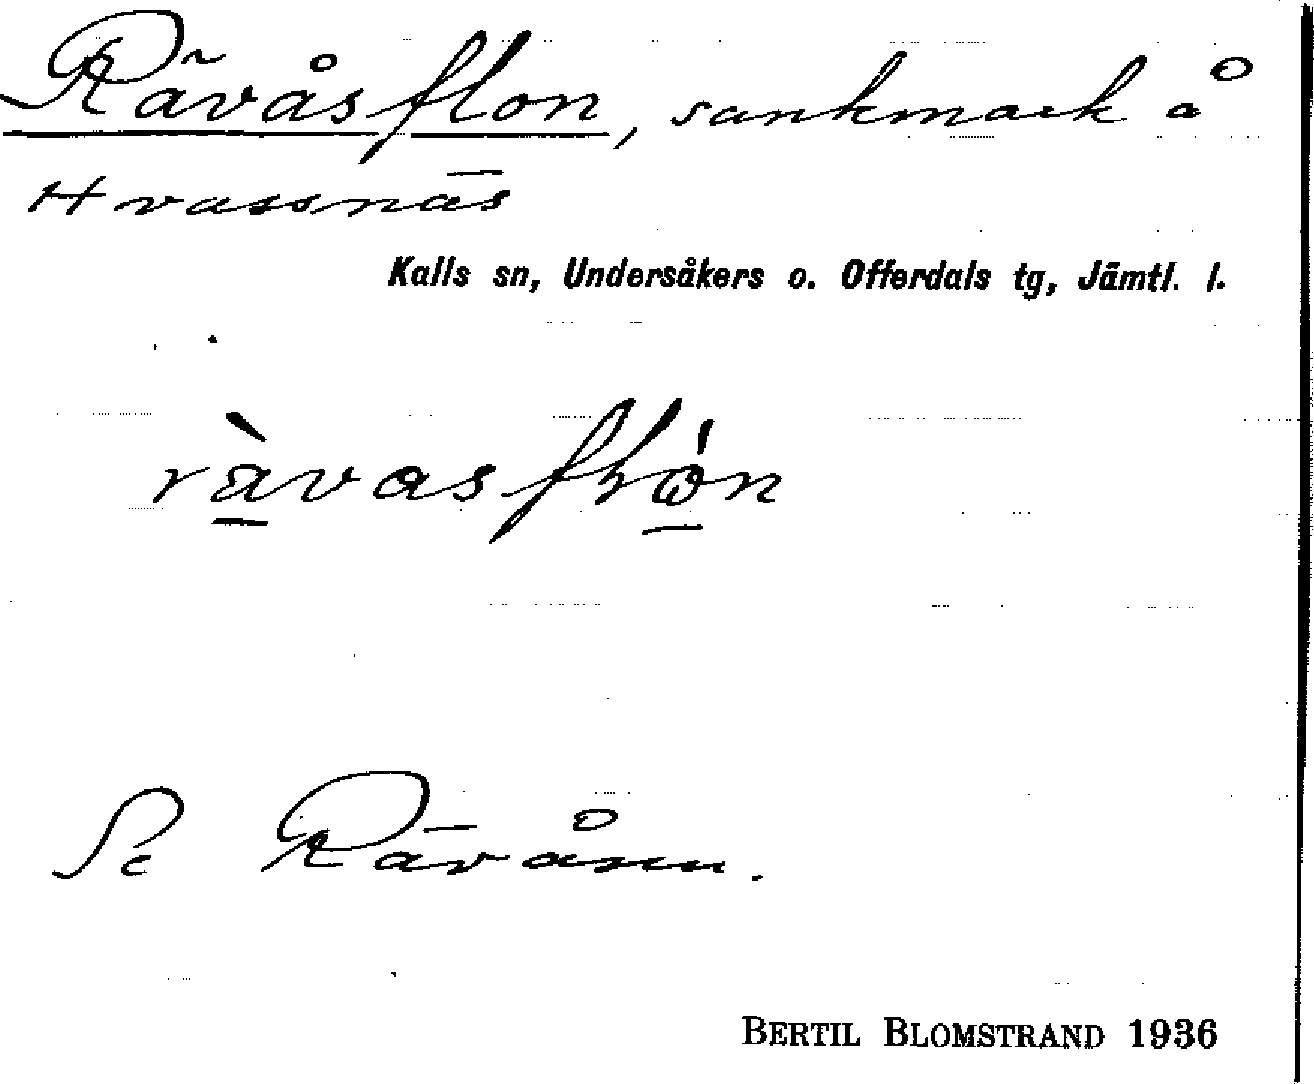 Rävåsflon, sankmark å
Hvassnäs
Kalls sn, Undersåkers o. Offerdals tg, Jämtl. l.
Se Rävåsen.
BERTIL BLOMSTRAND 1936